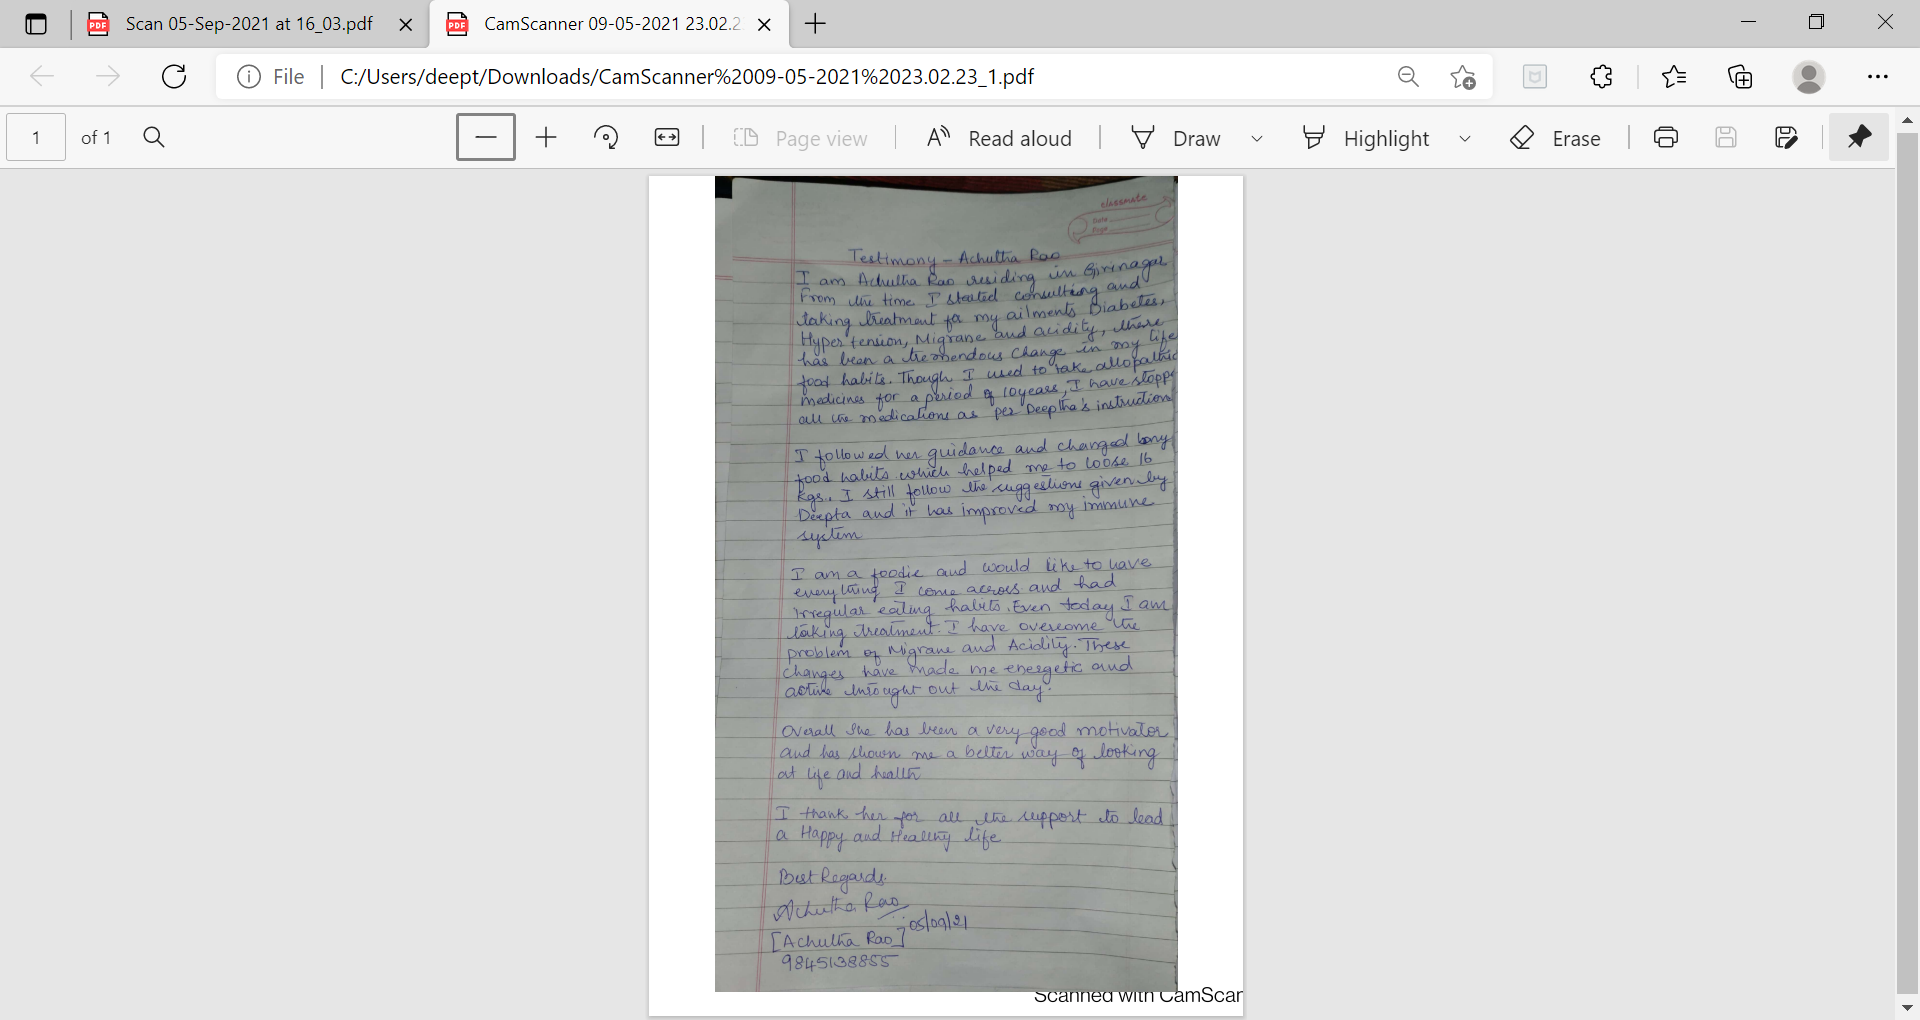 Scan 05-Sep-2021 at 16_03.pdf
CamScanner 09-05-2021 23.02.2
File
C:/Users/deept/Downloads/CamScanner%2009-05-2021%2023.02.23_1.pdf
1 of 1
Page view
Read aloud
Draw
Highlight
Erase
classmate
Date
Page
Testimony - Achultha Rao
I am Achultha Rao residing in Girinagar
From the time I started consulting and
taking treatment for my ailments Diabetes,
Hyper tension, Migrane and acidity, there
has been a tremendous change in my life
food habits. Though I used to take allopathic
medicines for a period of 10 years, I have stoppe
all the medications as per Deeptha's instructions
I followed her guidance and changed my
food habits which helped me to loose 16
kgs. I still follow the suggestions given by
Deepta and it has improved my immune
system
I am a foodie and would like to have
everything I come across and had
Irregular eating habits. Even today I am
taking treatment. I have overcome the
problem of Migrane and Acidity. These
changes have made me energetic and
active throught out the day.
Overall she has been a very good motivator
and has shown me a better way of looking
at life and health
I thank her for all the support to lead
a Happy and Healthy life
Best Regards
Achutha Rao
05/09/21
[Achultha Rao]
9845138855
Scanned with CamScar